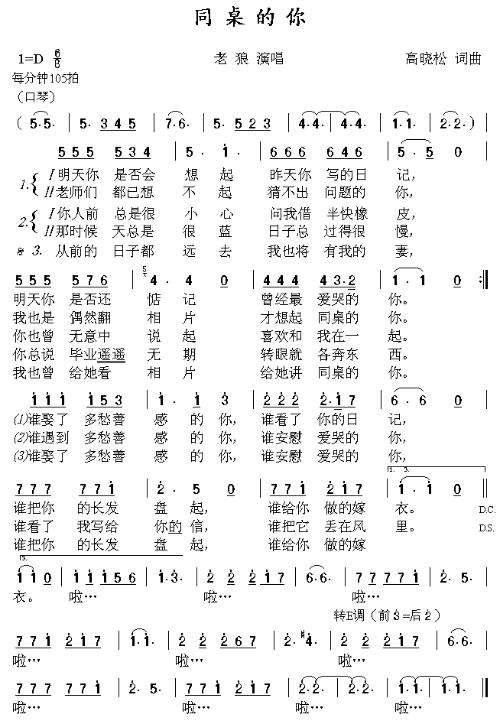 同桌的你
1=D 6/8 老狼 演唱 高晓松 词曲
每分钟105拍
（口琴）
( 5· 5· | 5· 3 4 5 | 7· 6· | 5· 5 2 3 | 4· 4· | 4· 4· | 1· 1· | 2· 2· )
5 5 5 5 3 4 | 5 · 1 · | 6 6 6 6 4 6 | 5 · 5 0 |
1. I 明天你 是否会 想 起 昨天你 写的日 记，
II 老师们 都已想 不 起 猜不出 问题的 你，
2. I 你人前 总是很 小 心 问我借 半块橡 皮，
II 那时候 天总是 很 蓝 日子总 过得很 慢，
3. 从前的 日子都 远 去 我也将 有我的 妻，
5 5 5 5 7 6 | 4 · 4 0 | 4 4 4 4 3·2 | 1 · 1 0 :||
明天你 是否还 惦 记 曾经最 爱哭的 你。
我也是 偶然翻 相 片 才想起 同桌的 你。
你也曾 无意中 说 起 喜欢和 我在一 起。
你总说 毕业遥遥 无 期 转眼就 各奔东 西。
我也曾 给她看 相 片 给她讲 同桌的 你。
1 1 1 1 5 3 | 1 · 1 3 | 2 2 2 2·1 7 | 6 · 6 0 |
(1)谁娶了 多愁善 感 的 你， 谁看了 你的日 记，
(2)谁遇到 多愁善 感 的 你， 谁安慰 爱哭的 你，
(3)谁娶了 多愁善 感 的 你， 谁安慰 爱哭的 你，
1. 2.
7 7 7 7 7 1 | 2 · 5 0 | 7 7 7 7 2 1 | 1 · 1 0
谁把你 的长发 盘 起， 谁给你 做的嫁 衣。 D.C.
谁看了 我写给 你的 信， 谁把它 丢在风 里。 D.S.
谁把你 的长发 盘 起， 谁给你 做的嫁
3.
1 1 0 | 1 1 1 5 6 | 1· 3· | 2 2 2 1 7 | 6· 6· | 7 7 7 7 7 1 | 2· 5· |
衣。 啦… 啦… 啦…
转E调（前3=后2）
7 7 1 2 1 7 | 1· 1· | 2 2 6 7 1 | 2· #4· | 7 7 1 2 1 7 | 6· 6· |
啦… 啦… 啦…
7 7 7 7 7 1 | 2· 5· | 7 7 1 2 1 7 | 2· 2· | 2· 2· | 1· 1· | 1· 1· ||
啦… 啦…